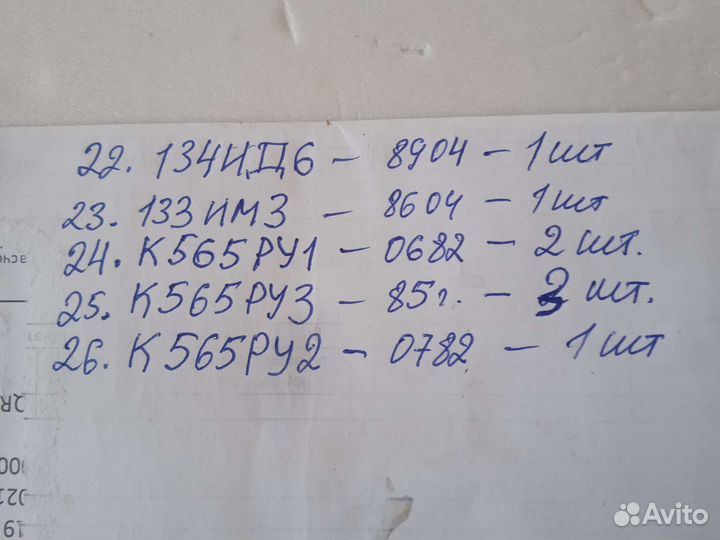 22. 134ИД6 - 8904 - 1шт
23. 133ИМ3 - 8604 - 1шт
24. К565РУ1 - 0682 - 2 шт.
25. К565РУ3 - 85г. - шт.
26. К565РУ2 - 0782 - 1 шт
Avito